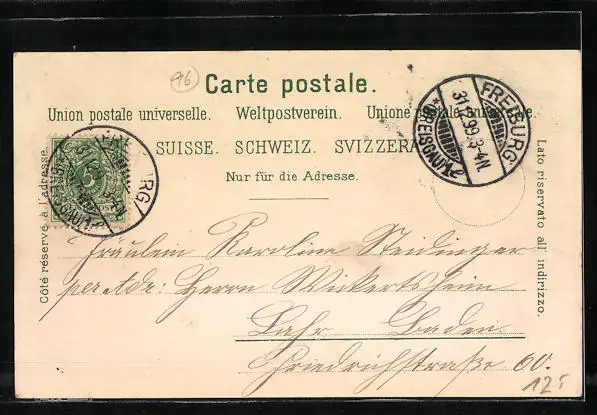 96
Carte postale.
Union postale universelle. Weltpostverein. Unione postale universale.
SUISSE. SCHWEIZ. SVIZZERA
Nur für die Adresse.
Côté réservé à l'adresse.
Lato riservato all' indirizzo.
FREIBURG
(BREISGAU)
FREIBURG
(BREISGAU)
5
Fräulein Karoline Steidinger
per Adr: Herrn Wickertsheim
Lahr Baden
Friedrichstraße 60.
125